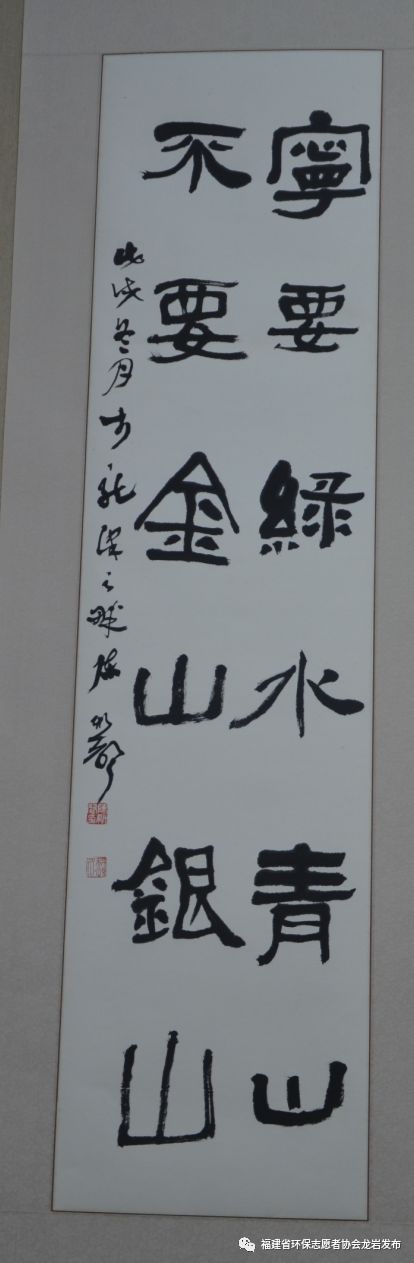 寧要綠水青山
不要金山銀山
戊戌冬月于龍津之畔
福建省环保志愿者协会龙岩发布